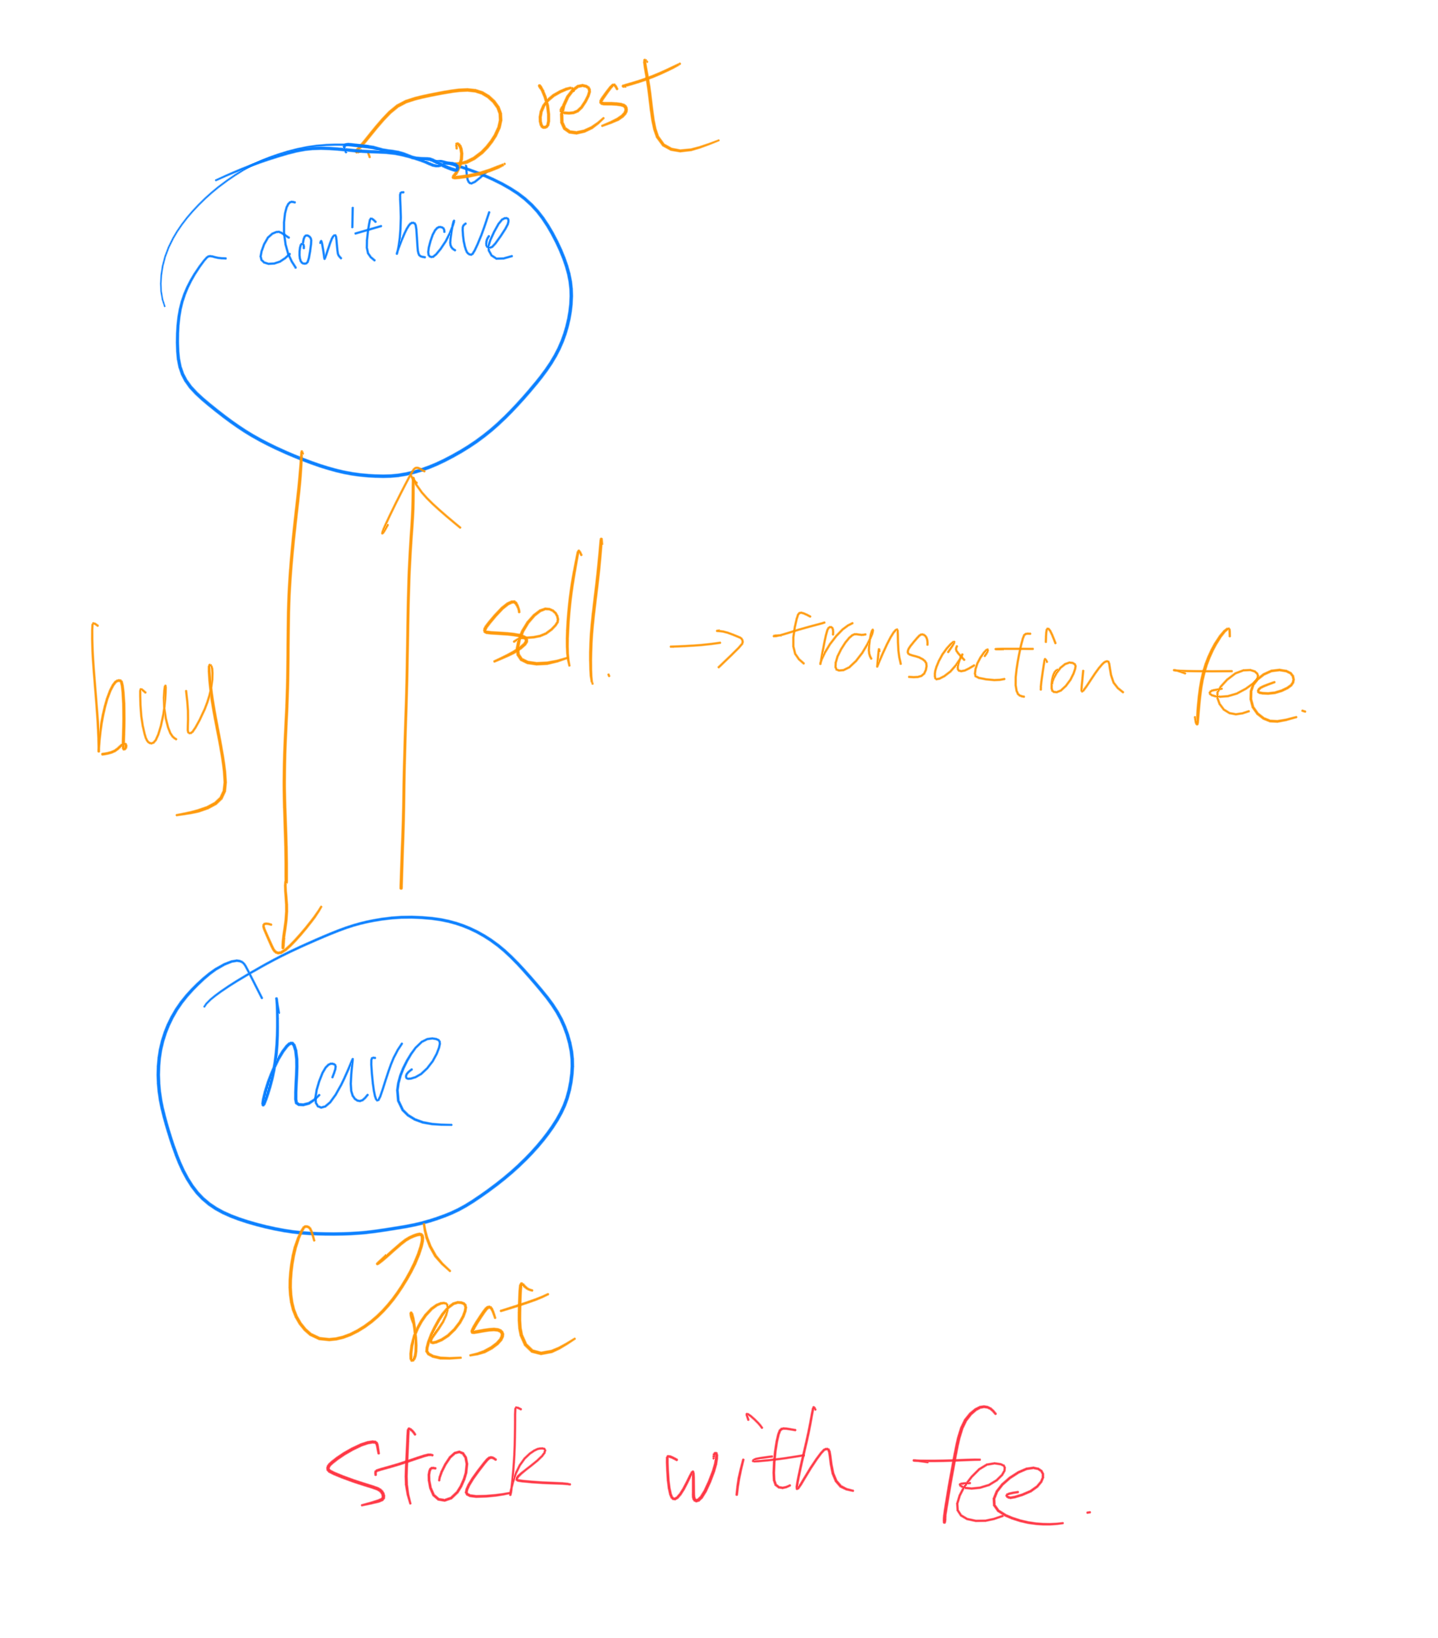 rest
don't have
buy
sell. → transaction fee.
have
rest
stock with fee.